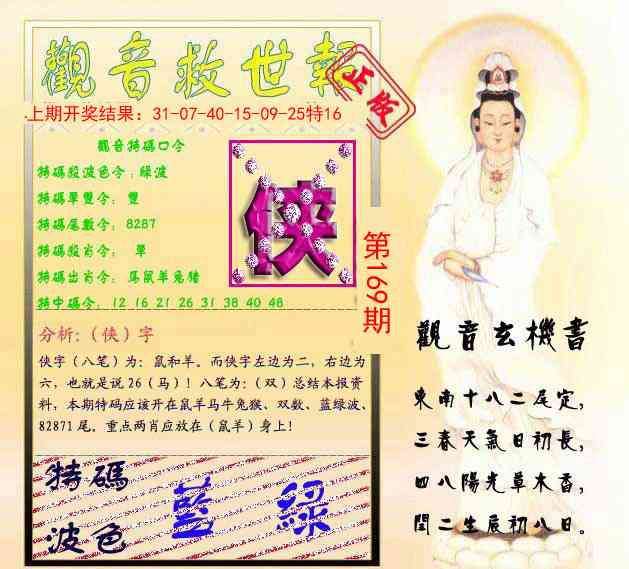 觀音救世報
正版
上期开奖结果：31-07-40-15-09-25特16
觀音特碼口令
特碼殺波色令：綠波
特碼單雙令：雙
特碼尾數令：8287
特碼殺肖令： 單
特碼出肖令：馬鼠羊兔豬
特中碼令：12 16 21 26 31 38 40 48
俠
第169期
分析:（侠）字
侠字（八笔）为：鼠和羊。而侠字左边为二，右边为
六，也就是说26（马）！八笔为：（双）总结本报资
料，本期特码应该开在鼠羊马牛兔猴、双数、蓝绿波、
82871尾。重点两肖应放在（鼠羊）身上！
特碼
波色
藍 綠
觀音玄機書
東南十八二尾定，
三春天氣日初長，
四八陽光草木香，
閏二生辰初八日。